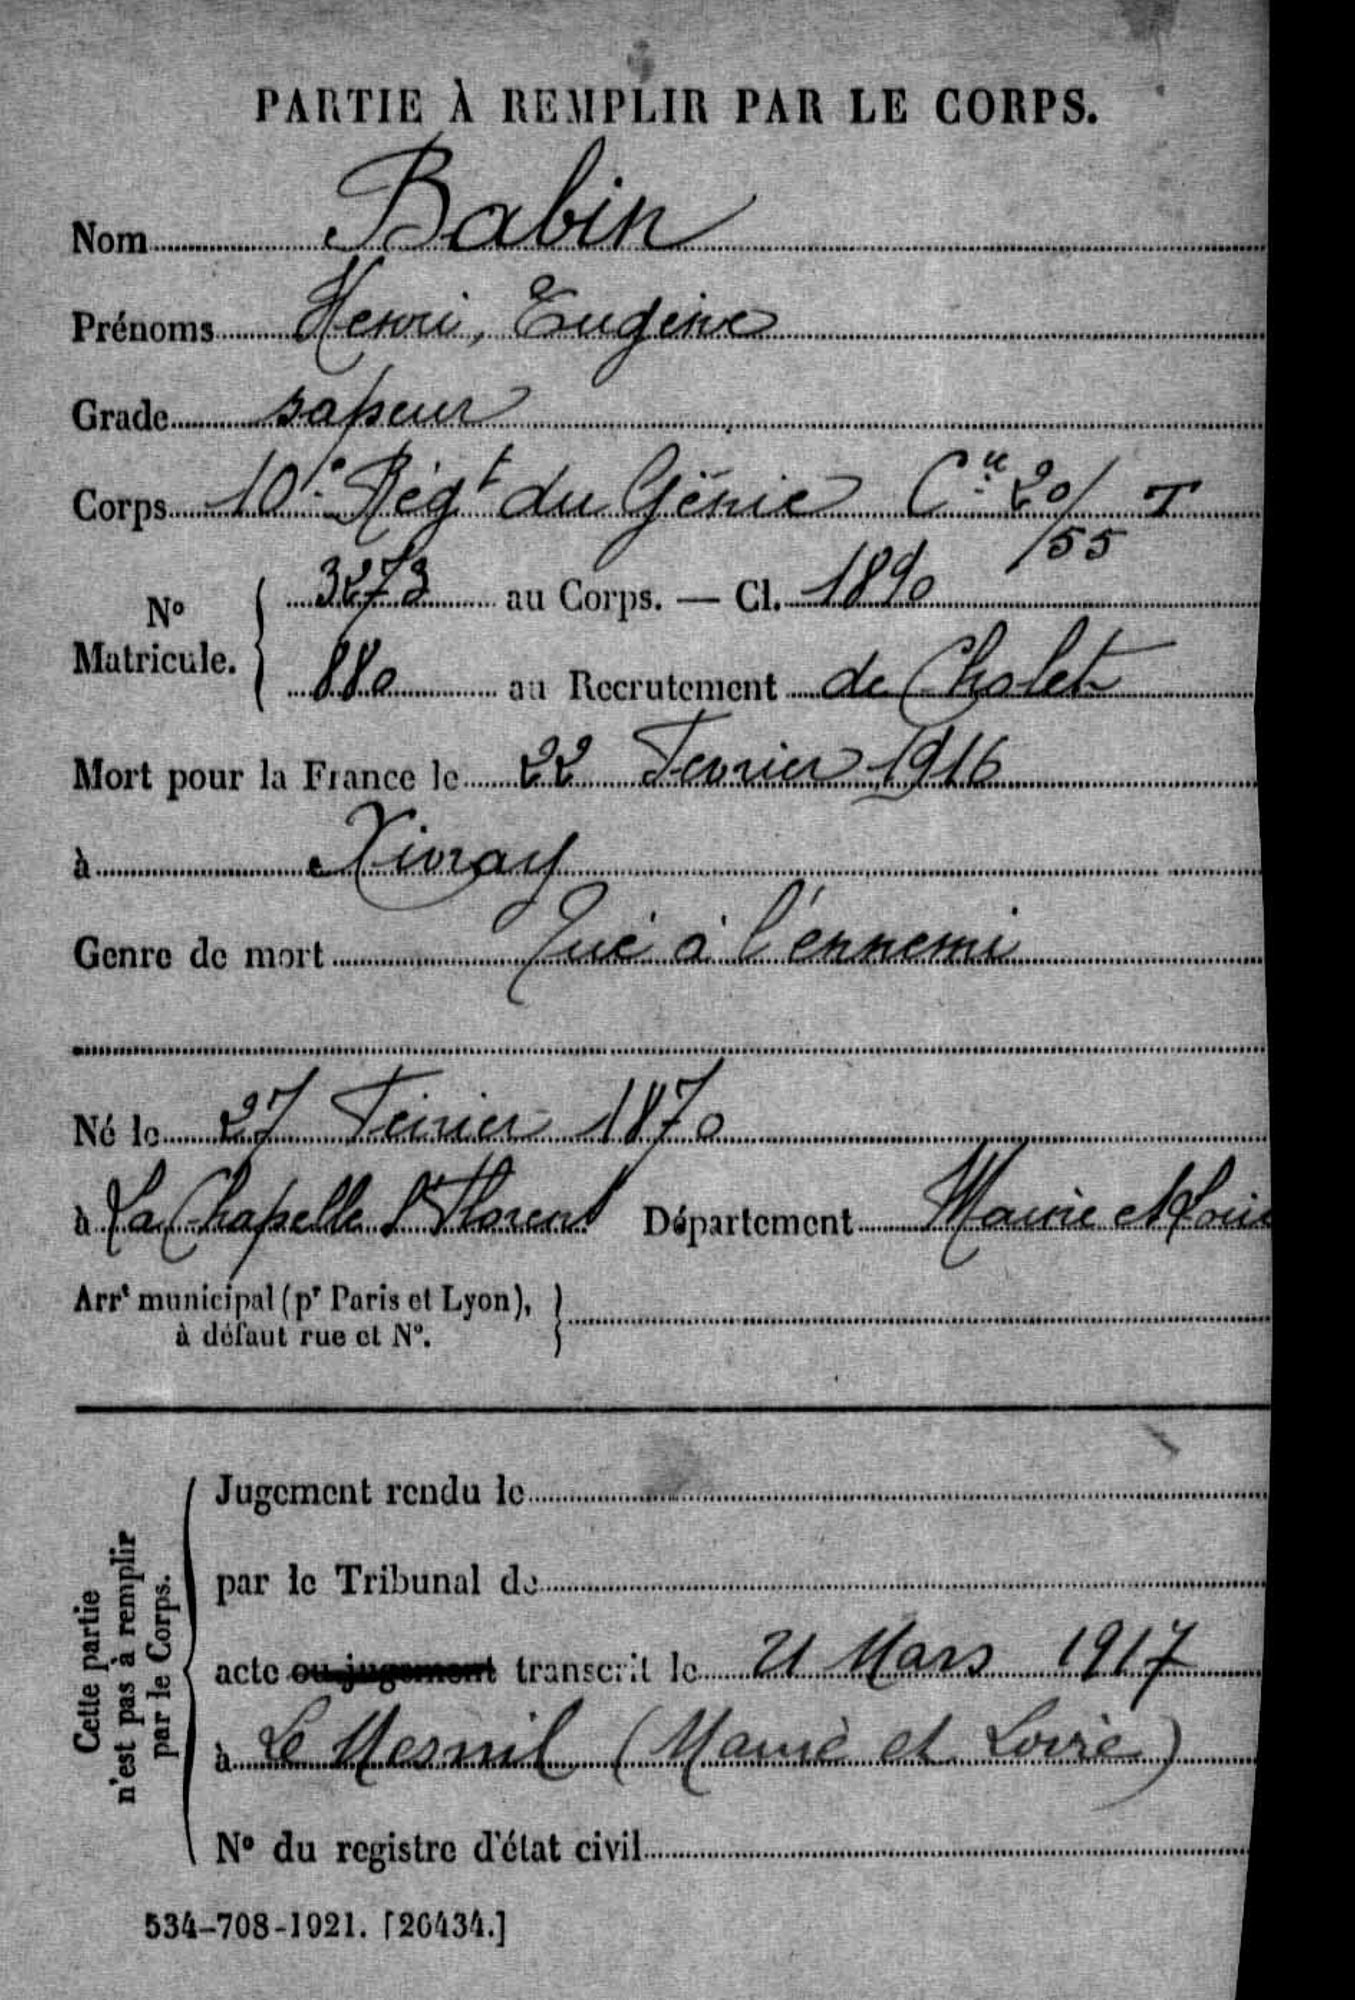 PARTIE À REMPLIR PAR LE CORPS.
Nom Babin
Prénoms Henri, Eugène
Grade sapeur
Corps 10e Régt du Génie Cie 20/55 T
No Matricule. 3273 au Corps. — Cl. 1890
880 au Recrutement de Cholet
Mort pour la France le 22 Fevrier 1916
à Xivray
Genre de mort Tué à l'ennemi
Né le 27 Fevrier 1870
à La Chapelle St Florent Département Maine et Loire
Arrt municipal (pr Paris et Lyon),
à défaut rue et No.
Cette partie
n'est pas à remplir
par le Corps.
Jugement rendu le
par le Tribunal de
acte ou jugement transcrit le 21 Mars 1917
à Le Mesnil (Maine et Loire)
No du registre d'état civil
534-708-1921. [26434.]